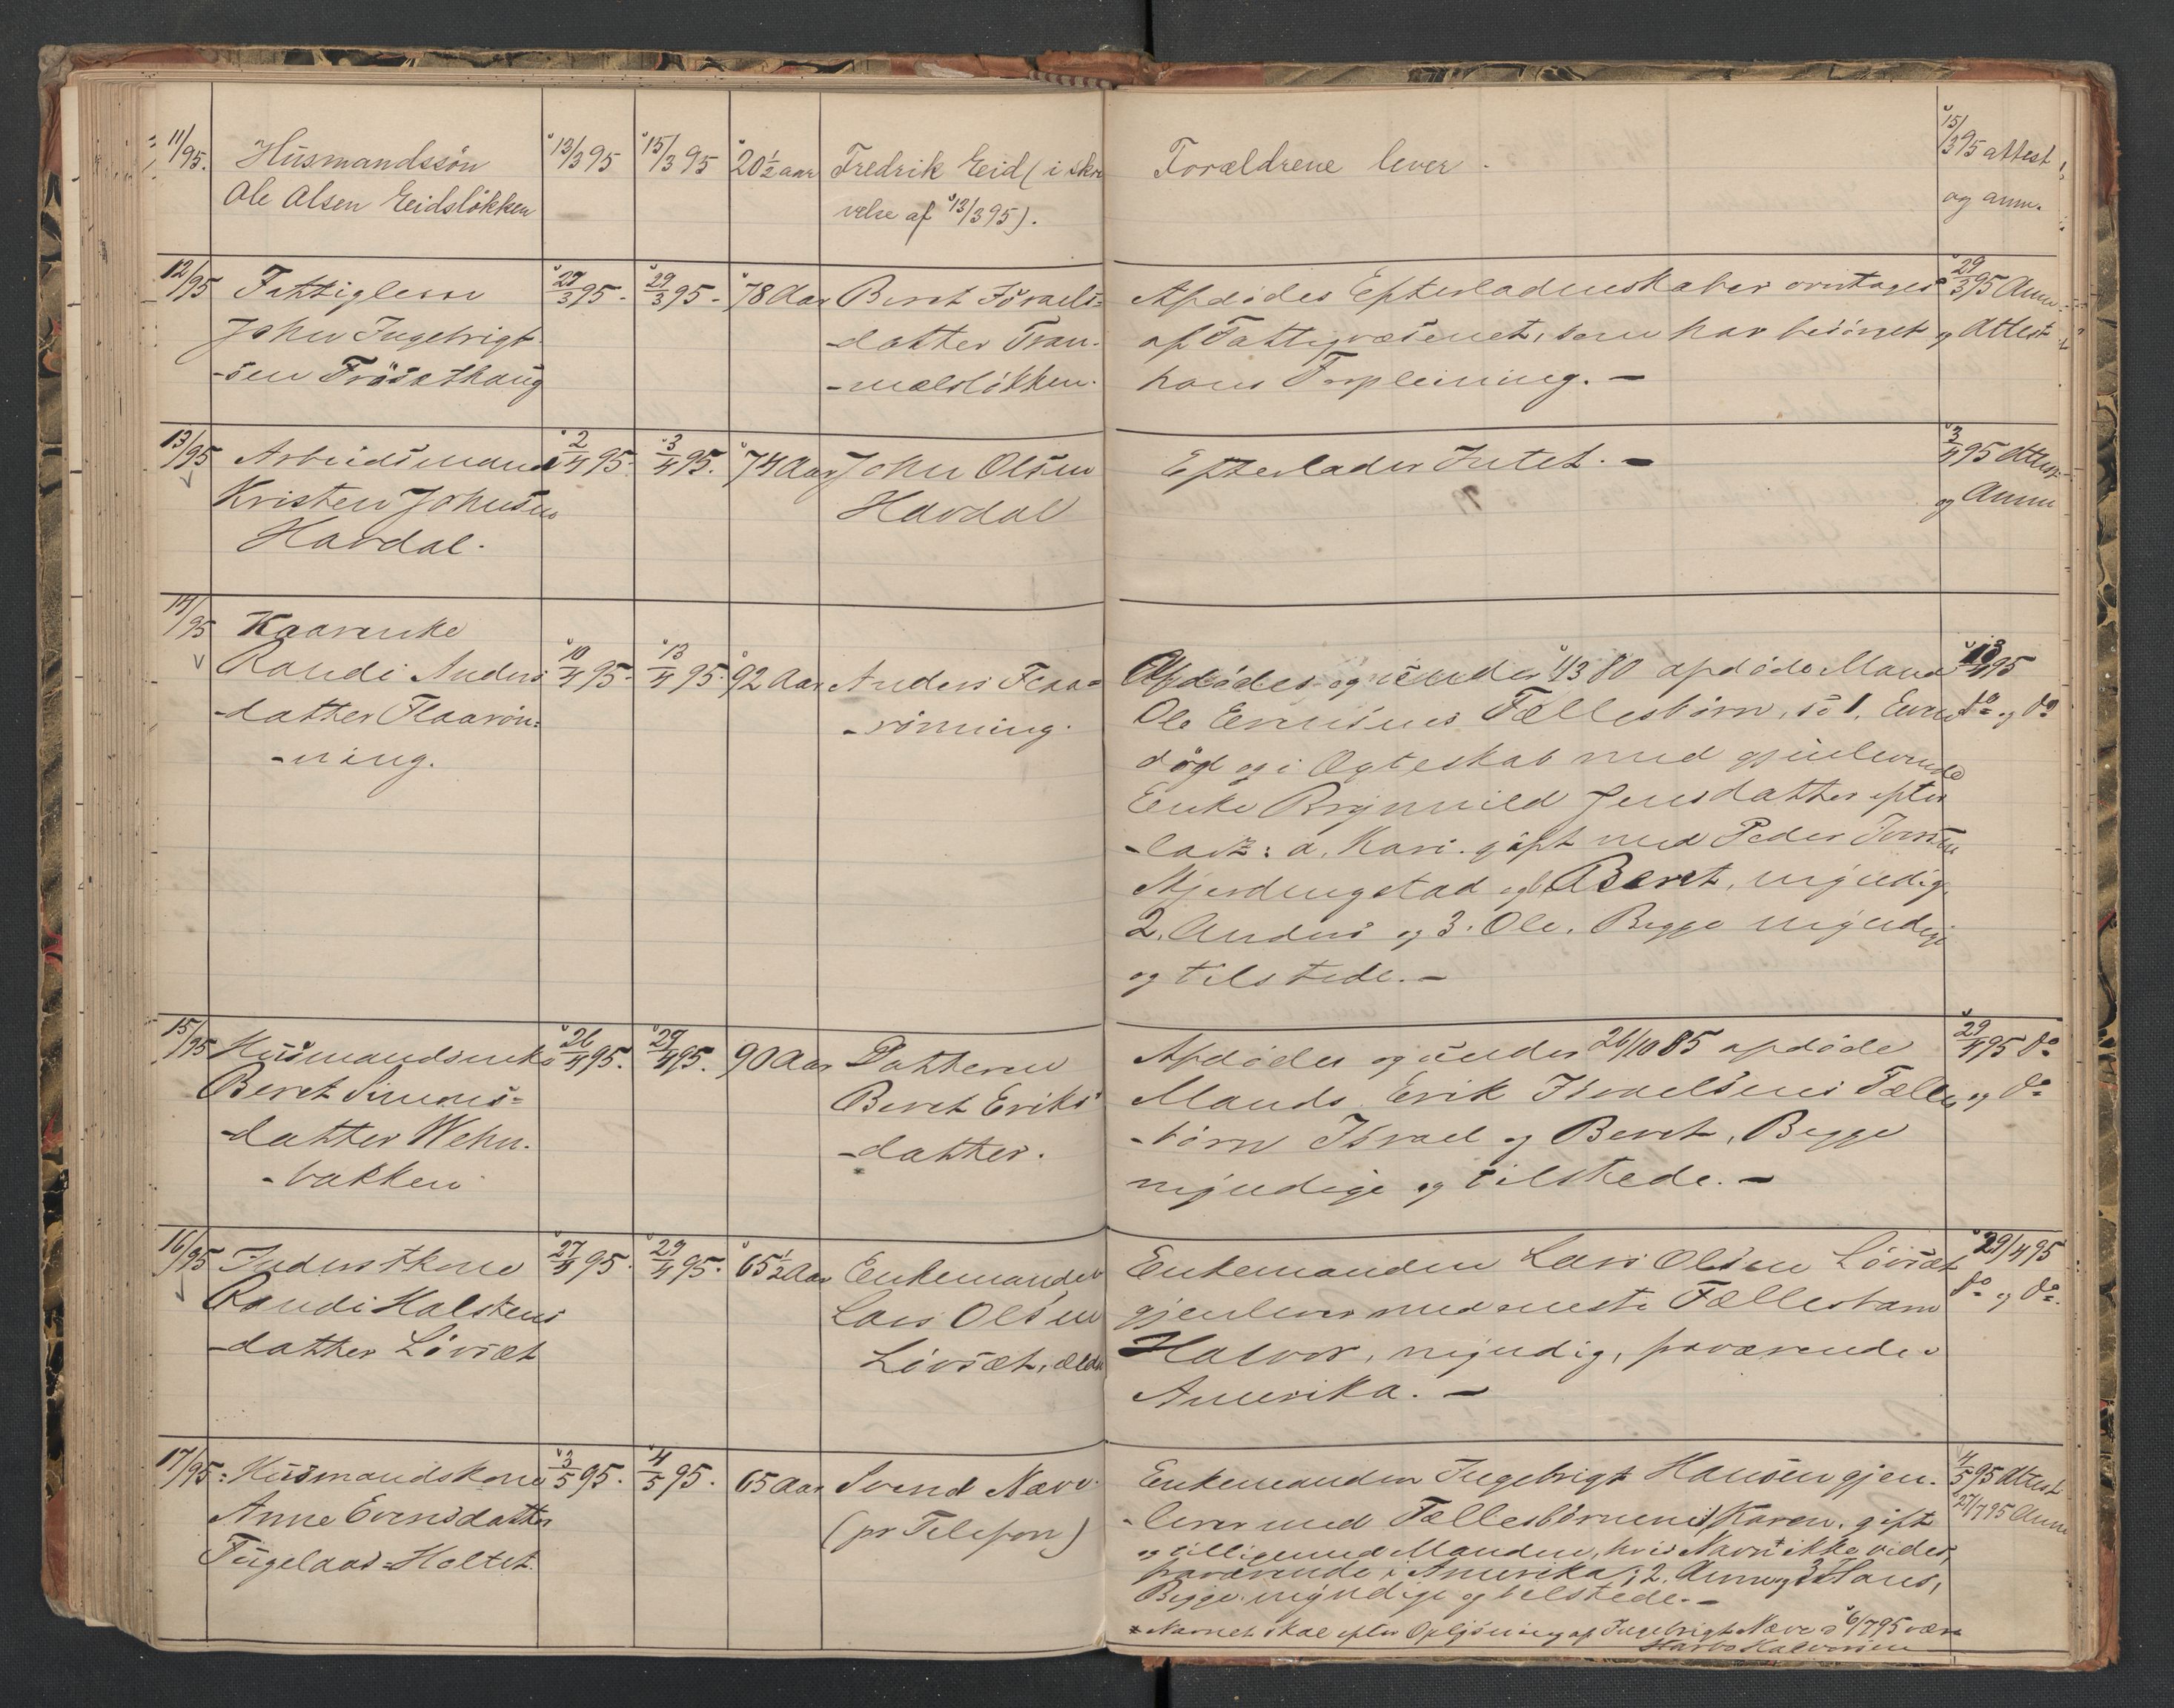 11/95.
Husmandssön
Ole Olsen Eidslökken
13/3 95
15/3 95
20 1/2 aar
Fredrik Eid (i skri
velse af 13/3 95).
Forældrene lever.
15/3 95 attest
og ann.
12/95
Fattiglem
John Ingebrigt
-sen Frösethaug
29/3 95.
29/3 95.
78 Aar
Beret Israels=
-datter Tran-
-mælsløkken.
Afdödes Efterladenskaber overtages
af Fattigvæsenet, som har besörget
hans Forpleining. -
29/3 95 Ann
og Attest
13/95
Arbeidsmand
Kristen Johnsen
Havdal.
2/4 95.
3/4 95.
74 Aar
John Olsen
Havdal
Efterlader Intet. -
3/4 95 Attest
og Ann
14/95
Kaarenke
Randi Anders
-datter Flaarön=
-ning.
10/4 95.
13/4 95.
92 Aar
Anders Flaa=
-rönning.
Afdödes og under 4/3 80 afdöde Mand
Ole Evensens Fællesbörn, s: 1. Even
död og i Ægteskab med gjenlevende
Enke Brynnild Jensdatter efter
-ladt: a, Kari. gift med Peder Iversen
Stjerdingstad og b Beret, myndig,
2. Anders og 3. Ole. Begge myndige
og tilstede. -
13/4 95
do og do
15/95
Husmandsenke
Beret Simons=
-datter Wehn-
-bakken
26/4 95.
29/4 95.
90 Aar
Datteren
Beret Eriks
-datter.
Afdödes og under 26/10 85 afdöde
Mands Erik Israelsens Fælles
-börn Israel og Beret, Begge
myndige og tilstede. -
29/4 95 do
og do
16/95
Inderstkone
Randi Halstens
-datter Lövsæt
27/4 95.
29/4 95.
65 1/2 Aar
Enkemanden
Lars Olsen
Lövsæt, ældr
Enkemanden Lars Olsen Lövsæt
gjenlever med eneste Fællesbarn
Halvor, myndig, fraværende i
Amerika. -
29/4 95
do og do.
17/95.
Husmandskone
Anne Evensdatter
Fugelaas=Holtet.
3/5 95.
4/5 95.
65 Aar
Svend Næve.
(pr Telefon)
Enkemanden Ingebrigt Hansen gjen-
-lever med Fællesbörnene: 1, Karen, gift
og tilligemed Manden, hvis Navn ikke vides,
fraværende i Amerika; 2. Anne og 3 Hans,
Begge myndige og tilstede. -
Navnet skal efter Oplysning af Ingebrigt Næve 6/7 95 være
Halvorsen
4/5 95 Attest
27/7 95 Ann